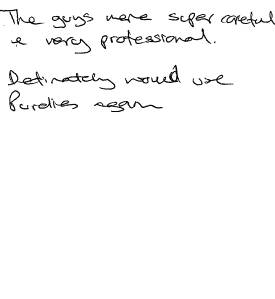 The guys were super careful
& very professional.
Definately would use
Purdies again